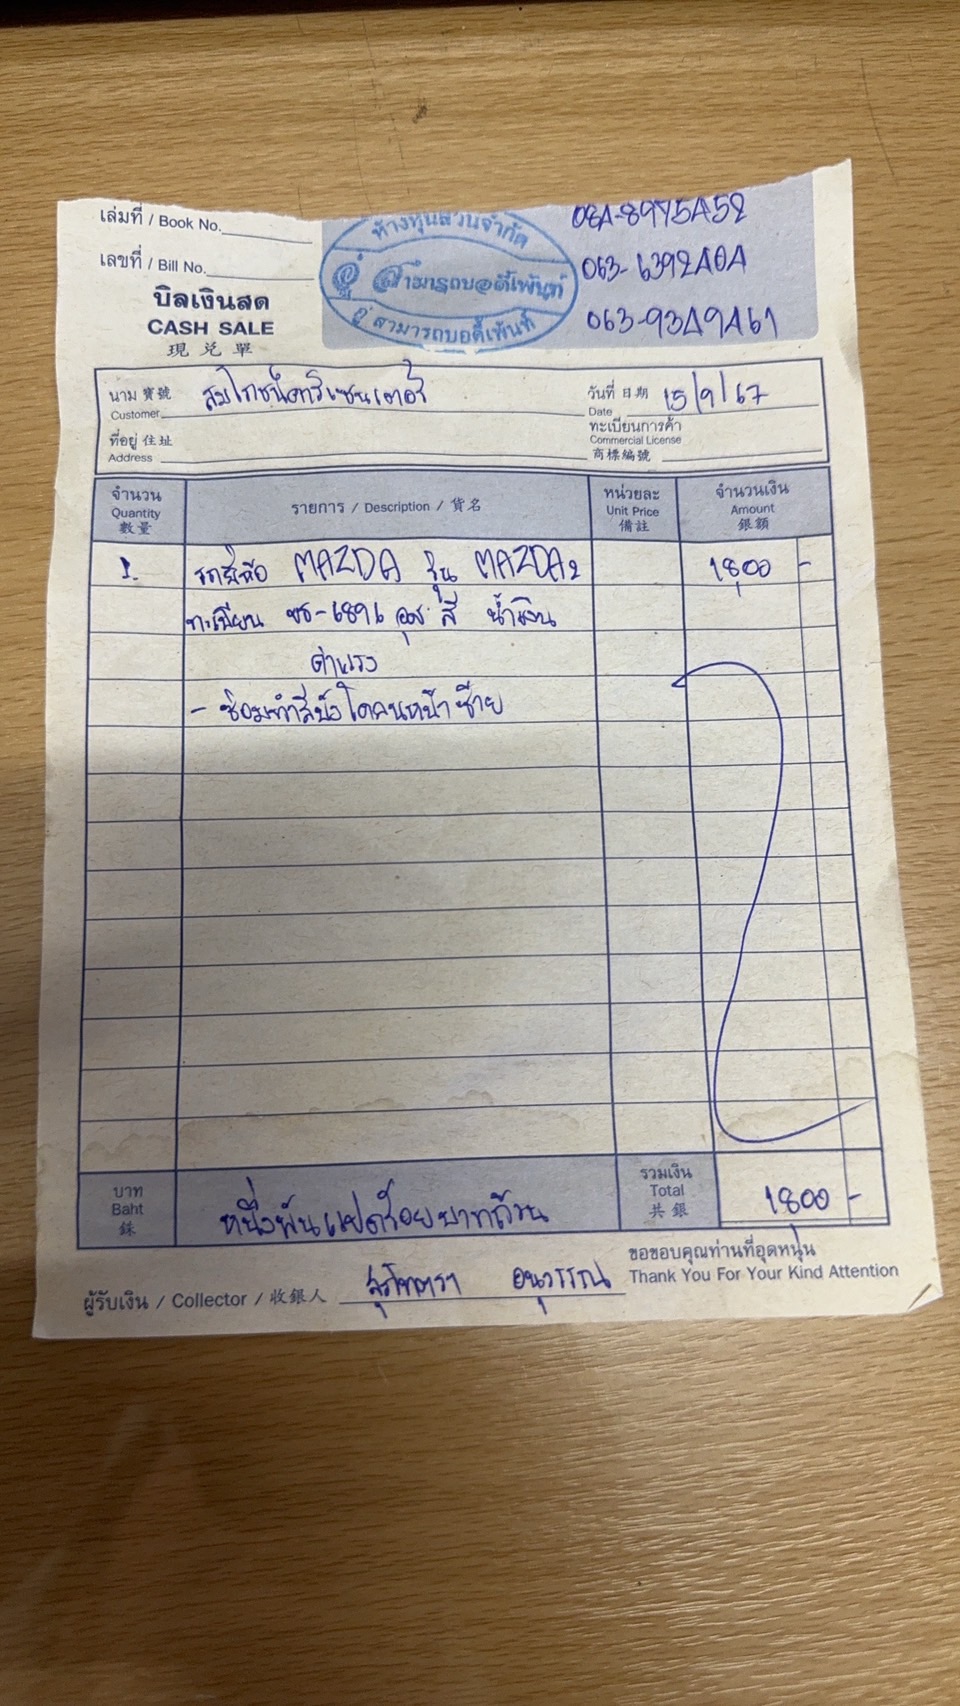 เล่มที่ / Book No.
เลขที่ / Bill No.
บิลเงินสด
CASH SALE
現兌單
ห้างหุ้นส่วนจำกัด
อู่ สามารถบอดี้เพ้นท์
อู่ สามารถบอดี้เพ้นท์
นาม 寶號
Customer
วันที่ 日期
Date 15/9/67
ที่อยู่ 住址
Address
ทะเบียนการค้า
Commercial License
商標編號
จำนวน
Quantity
數量
รายการ / Description / 貨名
หน่วยละ
Unit Price
備註
จำนวนเงิน
Amount
銀額
1. รถยี่ห้อ MAZDA รุ่น MAZDA2 1,800 -
ทะเบียน ขธ-6896 อุดร สี น้ำเงิน
ค่าแรง
- ซ่อมทำสีบังโคลนหน้าซ้าย
บาท
Baht
銖
หนึ่งพันแปดร้อยบาทถ้วน
รวมเงิน
Total
共銀
1800 -
ขอขอบคุณท่านที่อุดหนุน
Thank You For Your Kind Attention
ผู้รับเงิน / Collector / 收銀人